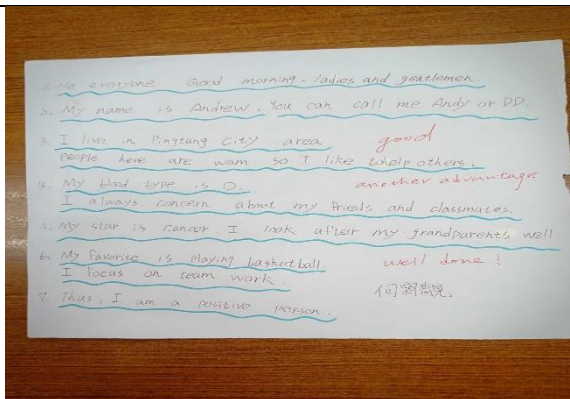 1. Ho everyone Good morning. ladies and gentlemen.
2. My name is Andrew. You can call me Andy or DD.
3. I live in Pingtung City area good
People here are wam. so I like tohelp others.
another advantage
4. My blood type is O.
I always concern about my friends and classmates.
5. My star is cancer. I look after my grandparents well.
6. My favorite is playing basketball. well done!
I focus on team work.
7. Thus, I am a positive person.